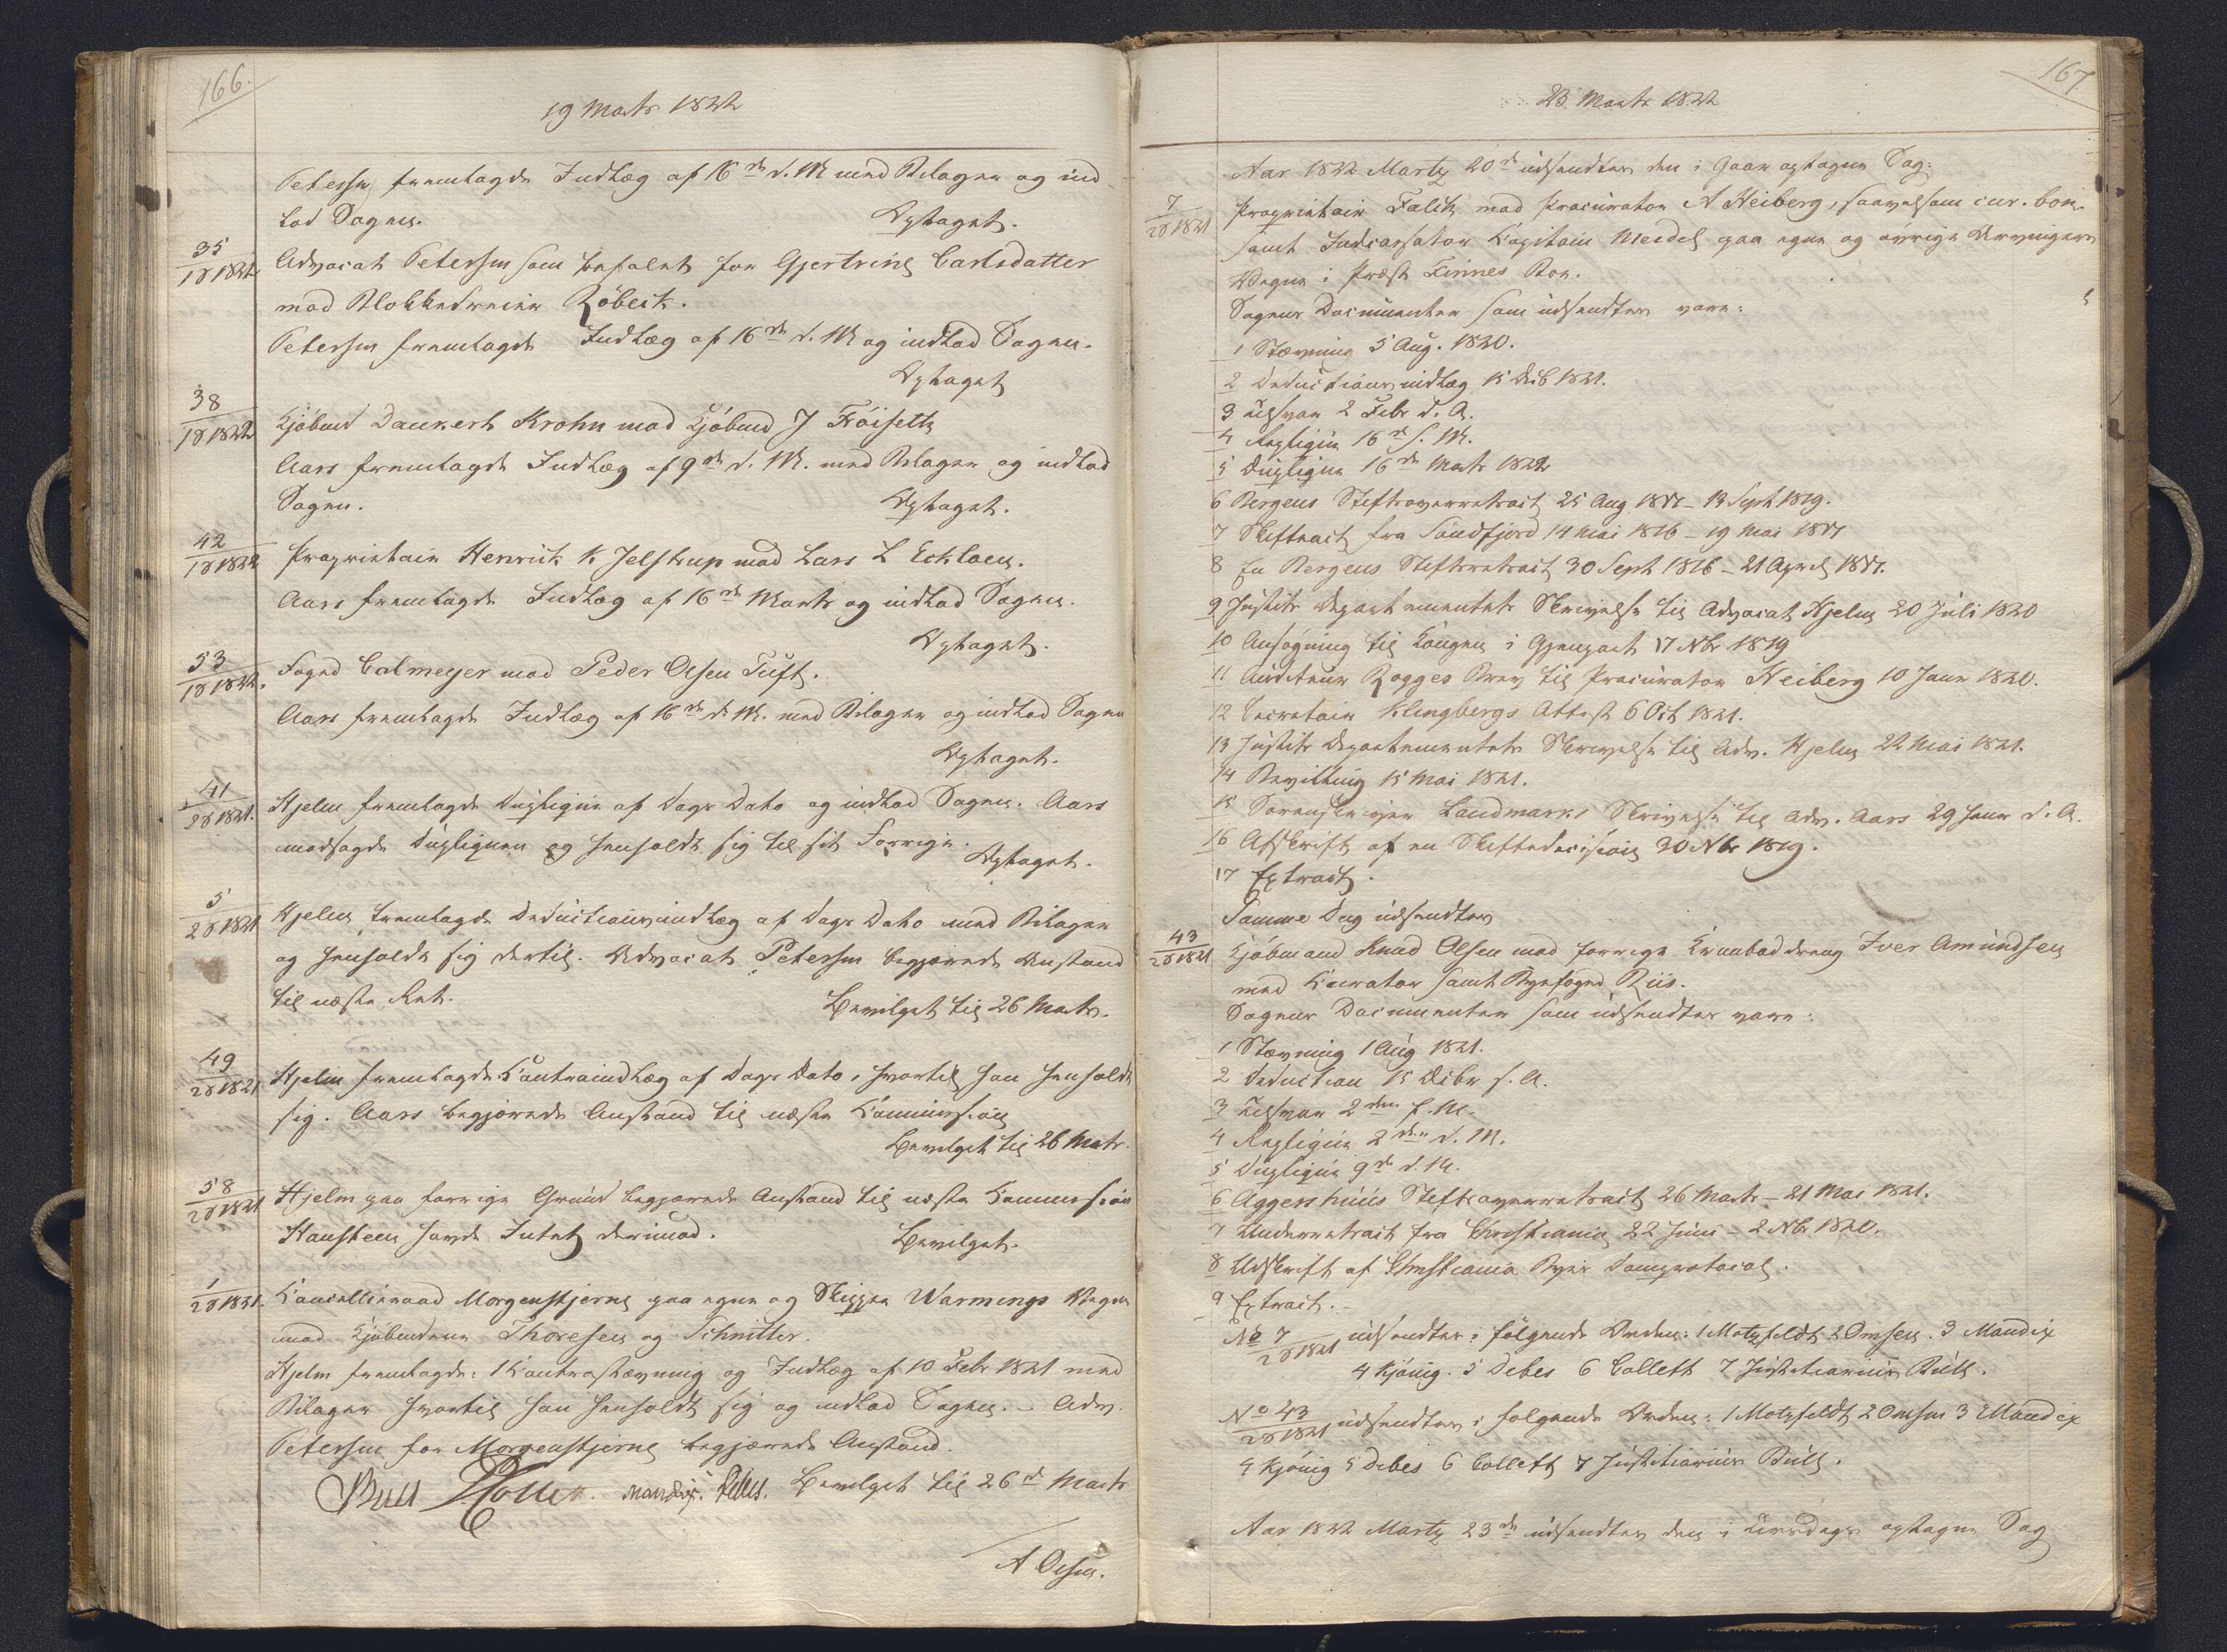 166.
19 Marts 1822
Petersen fremlagde Indlæg af 16de d. M. med Bilager og ind-
lod Sagen. Optaget.
35/1ß1822 Advocat Petersen som befalet for Gjertrine Carlsdatter
mod Blokkedreier Röbeck.
Petersen fremlagde Indlæg af 16de d. M og indlod Sagen.
Optaget
38/1ß1822 Kjöbmd Danckert Krohn mod Kjöbmd J Fröiseth
Aars fremlagde Indlæg af 9de d. M. med Bilager og indlod
Sagen. Optaget.
42/1ß1822 Proprietair Henrick K Jelstrup mod Lars L
Aars fremlagde Indlæg af 16de Marts og indlod Sagen.
Optaget.
53/1ß1822. Foged Calmeyer mod Peder Olsen Tuft.
Aars fremlagde Indlæg af 16de d. M. med Bilager og indlod Sagen
Optaget.
41/2ß1821. Hjelm fremlagde Dupliqve af Dags Dato og indlod Sagen. Aars
modsagde Dupliqven og henholdt sig til sit Forrige.
Optaget.
5/2ß1821 Hjelm fremlagde Deductionsindlæg af Dags Dato med Bilager
og henholdt sig dertil. Advocat Petersen begjærede Anstand
til næste Ret. Bevilget til 26 Marts.
49/2ß1821 Hjelm fremlagde Contraindlæg af Dags Dato, hvortil han henholdt
sig. Aars begjærede Anstand til næste Commission
Bevilget til 26 Marts.
58/2ß1821 Hjelm paa forrige Grund begjærede Anstand til næste Commission
Hansteen havde Intet derimod. Bevilget.
1/2ß1821. Cancelliraad Morgenstjerne paa egne og Skipper Warmings Vegne
mod Kjöbmdene Thoresen og Schnitler.
Hjelm fremlagde: 1 Contrastævning og Indlæg af 10 Febr 1821 med
Bilager hvortil han henholdt sig og indlod Sagen. - Adv.
Petersen for Morgenstjerne begjærede Anstand.
Bull Motzfeldt. Mandix. Debes. Bevilget til 26de Marts
A Omsen.
167
23 Marts 1822
Aar 1822 Martz 20de udsendtes den i Gaar optagne Sag:
7/2ß1821 Proprietair Falck mod Procurator A Heiberg, saavelsom cur. bon.
samt Incassator Capitain Meidel paa egne og övrige Arvingers
Vegne i Præst Finnes Boe.
Sagens Documenter som udsendtes vare:
1 Stævning 5 Aug. 1820.
2 Deductionsindlæg 15 Decb 1821.
3 Tilsvar 2 Febr d. A.
4 Repliqve 16de s. M.
5 Dupliqve 16de Marts 1822
6 Bergens Stiftsoverretsact 25 Aug 1817 - 13 Sept 1819.
7 Skifteact fra Söndfjord 14 Mai 1816 - 19 Mai 1817
8 En Bergens Stiftsretsact 30 Sept 1816 - 21 April 1817.
9 Justits Departementets Skrivelse til Advocat Hjelm 20 Juli 1820
10 Ansögning til Kongen i Gjenpart 17 Nbr 1819
11 Auditeur Rogges Brev til Procurator Heiberg 10 Janr 1820.
12 Secretair Klingbergs Attest 6 Oct 1821.
13 Justits Departementets Skrivelse til Adv. Hjelm 22 Mai 1821.
14 Bevilling 15 Mai 1821.
15 Sorenskriver Landmarks Skrivelse til Adv. Aars 29 Janr d. A.
16 Afskrift af en Skiftedecision 30 Nbr 1819.
17 Extract.
Samme Dag udsendtes
43/2ß1821 Kjöbmand Knud Olsen mod forrige Krambaddreng Iver Amundsen
med Curator samt Byefoged Riis.
Sagens Documenter som udsendtes vare:
1 Stævning 1 Aug 1821.
2 Deduction 15 Decbr f. A.
3 Tilsvar 2den f. M.
4 Repliqve 2den d. M.
5 Dupliqve 9de d. M.
6 Aggershuus Stiftsoverretsact 26 Marts - 21 Mai 1821.
7 Underretsact fra Christiania 22 Juni - 2 Nbr 1820.
8 Udskrift af Christiania Byes Domprotocol.
9 Extract. -
No 7/2ß1821 udsendtes i fölgende Orden: 1 Motzfeldt 2 Omsen. 3 Mandix
4 Kjönig. 5 Debes 6 Collett 7 Justitiarius Bull.
No 43/2ß1821 udsendtes i fölgende Orden: 1 Motzfeldt 2 Omsen 3 Mandix
4 Kjönig 5 Debes 6 Collett 7 Justitiarius Bull.
Aar 1822 Martz 23de udsendtes den i Tirsdags optagne Sag